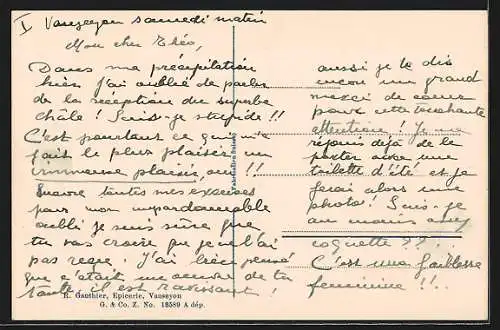 I Vauseyon samedi matin
Mon cher Théo,
Dans ma précipitation
hier j'ai oublié de parler
de la réception du superbe
châle! Suis-je stupide!!
C'est pourtant ce qui m'a
fait le plus plaisir, un
immense plaisir, oui!!
toutes mes excuses
pour mon impardonnable
oubli je suis sûre que
tu vas croire que je ne l'ai
pas reçu. J'ai bien pensé
que c'était une œuvre de ta
tante, il est ravissant!
aussi je te dis
encore un grand
merci de cœur
pour cette touchante
attention! Je me
réjouis déjà de le
porter avec une
toilette d'été et je
ferai alors une
photo! Suis-je
au moins assez
coquette??.
C'est une faiblesse
féminine!!..
Fabrication Suisse
R. Gauthier, Epicerie, Vauseyon
G. & Co. Z. No. 12589 A dép.